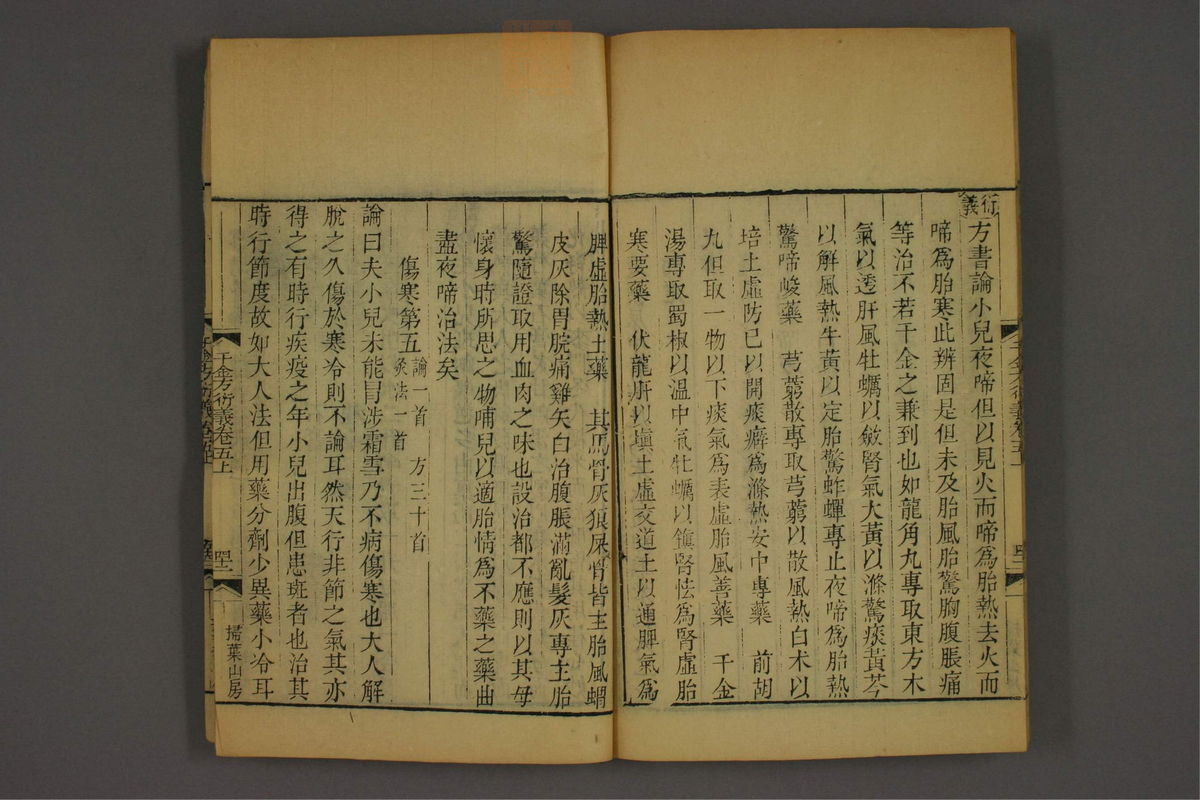 衍義
方書論小兒夜啼但以見火而啼為胎熱去火而
啼為胎寒此辨固是但未及胎風胎驚胸腹脹痛
等治不若千金之兼到也如龍角丸專取東方木
氣以透肝風牡蠣以斂腎氣大黃以滌驚痰黃芩
以解風熱牛黃以定胎驚蚱蟬專止夜啼為胎熱
驚啼峻藥　芎藭散專取芎藭以散風熱白术以
培土虛防己以開痰癖為滌熱安中專藥　前胡
丸但取一物以下痰氣為表虛胎風善藥　千金
湯專取蜀椒以溫中氣牡蠣以鎮腎怯為腎虛胎
寒要藥　伏龍肝以塡土虛交道土以通脾氣為
脾虛胎熱土藥　其馬骨灰狼屎骨皆主胎風蝟
皮灰除胃脘痛雞矢白治腹脹滿亂髮灰專主胎
驚隨證取用血肉之味也設治都不應則以其母
懷身時所思之物哺兒以適胎情為不藥之藥曲
盡夜啼治法矣
傷寒第五　論一首　方三十首　灸法一首
論曰夫小兒未能冒涉霜雪乃不病傷寒也大人解
脫之久傷於寒冷則不論耳然天行非節之氣其亦
得之有時行疾疫之年小兒出腹但患斑者也治其
時行節度故如大人法但用藥分劑少異藥小冷耳
千金方衍義卷五上
掃葉山房